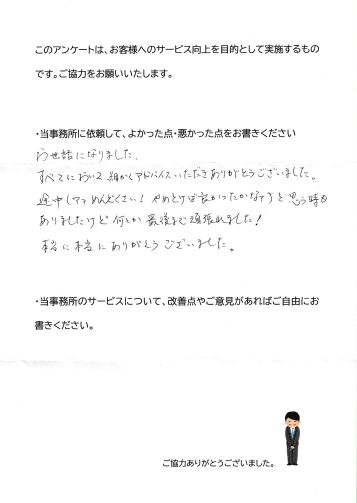 このアンケートは、お客様へのサービス向上を目的として実施するもの
です。ご協力をお願いいたします。
・当事務所に依頼して、よかった点・悪かった点をお書きください
お世話になりました。
すべてにおいて細かくアドバイスいただきありがとうございました。
途中(アァめんどくさい！やめとけば良かったかなァ)と思う時も
ありましたけど何とか最後まで頑張れました！
本当に本当にありがとうございました。
・当事務所のサービスについて、改善点やご意見があればご自由にお
書きください。
ご協力ありがとうございました。